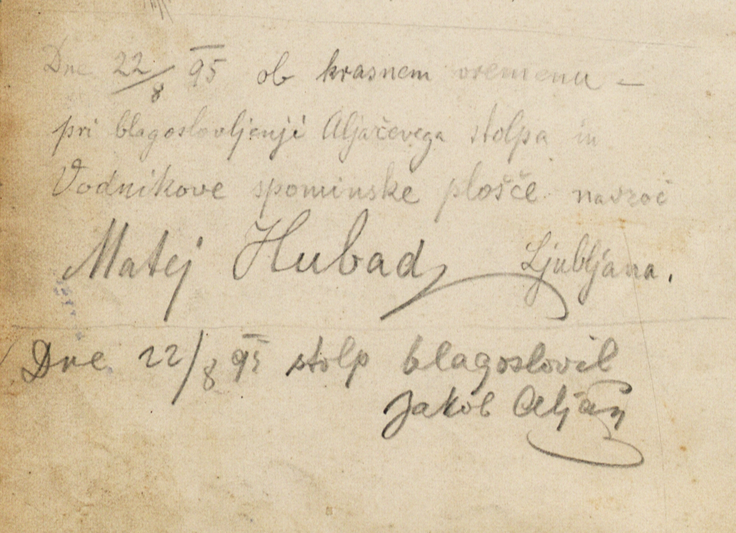 Dne 22/8 95 ob krasnem vremenu –
pri blagoslovljenji Aljaževega stolpa in
Vodnikove spominske plošče navzoč
Matej Hubad Ljubljana.
Dne 22/8 95 stolp blagoslovil
Jakob Aljaž